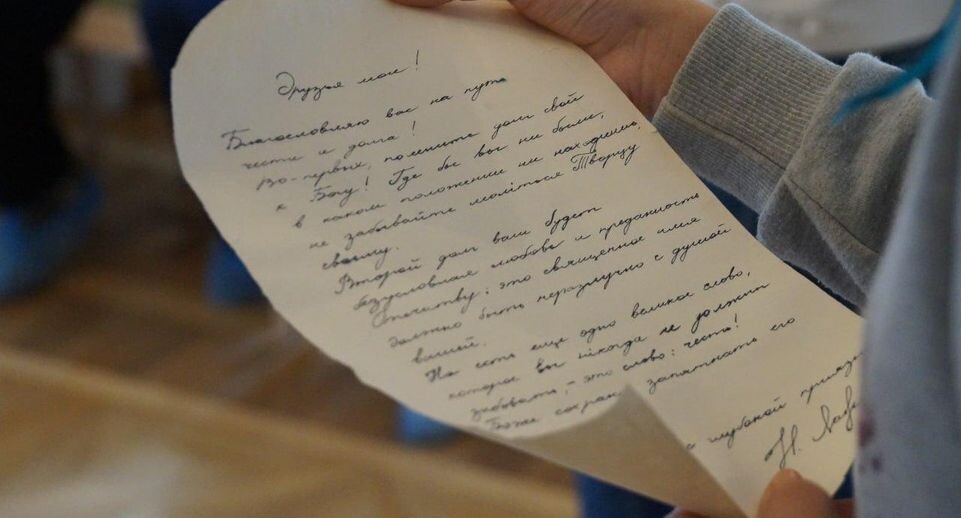 Друзья мои!
Благословляю вас на путь
чести и долга!
Во-первых, помните долг свой
к Богу! Где бы вы ни были,
в каком положении ни находились,
не забывайте молiться Творцу
своему.
Второй долг ваш будет
безусловная любовь и преданность
Отечеству: это священное имя
должно быть неразлучно с душой
вашей.
Но есть еще одно великое слово,
которое вы нiкогда не должны
забывать, - это слово: честь!
Боже сохрани запятнать его
с глубокой
Н.